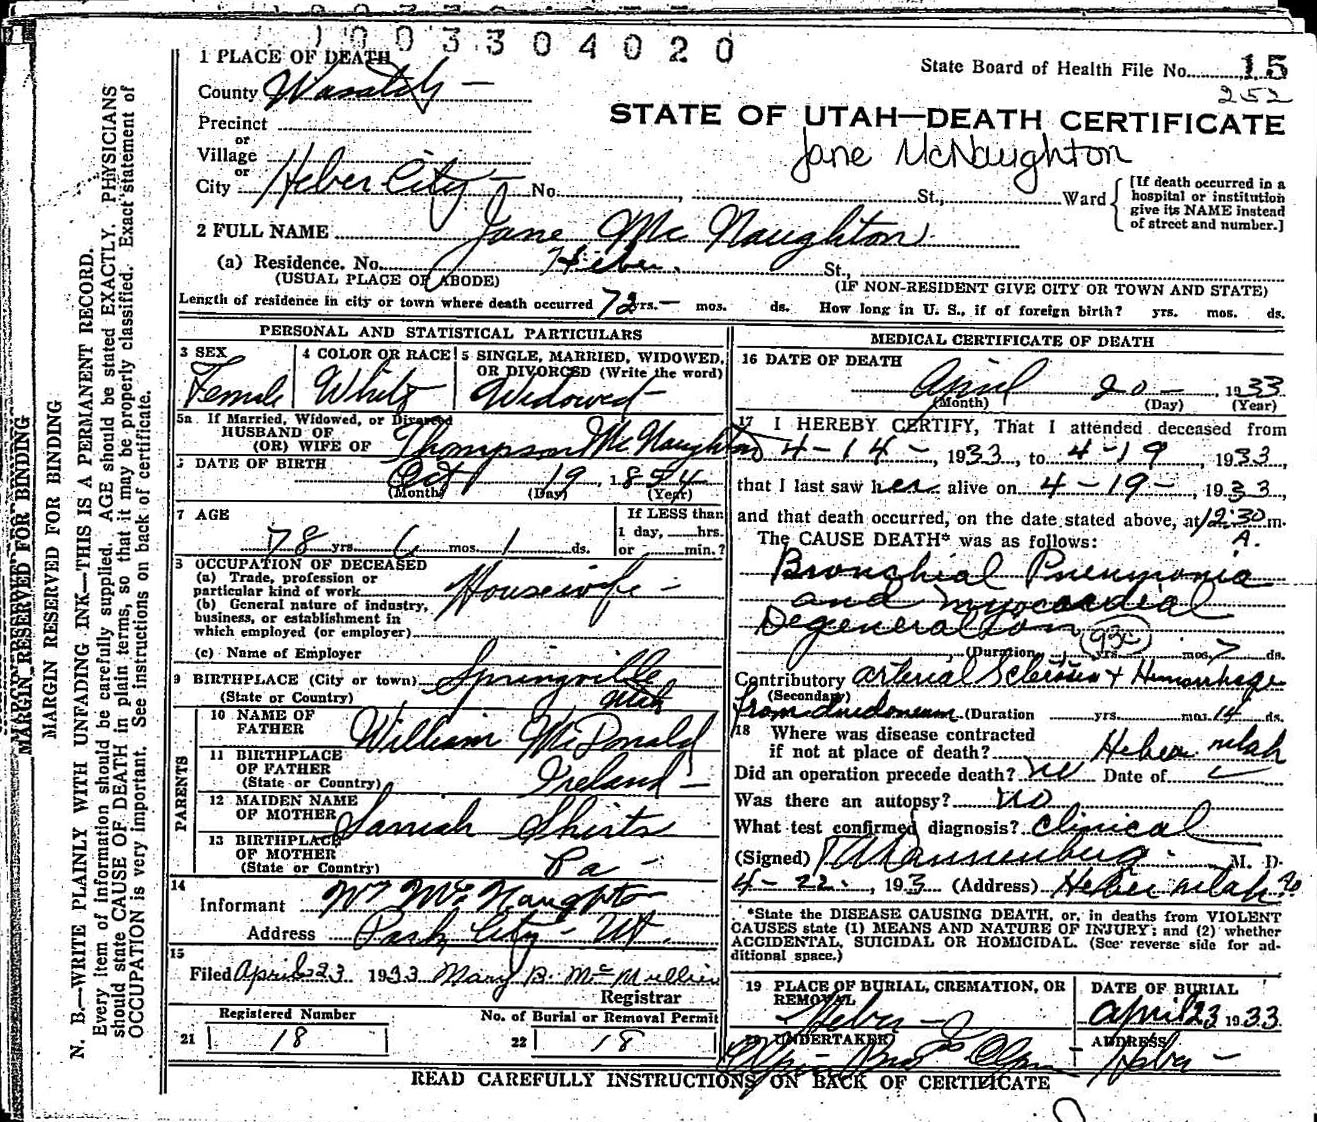 1003304020
1 PLACE OF DEATH
State Board of Health File No. 15
252
County Wasatch -
STATE OF UTAH—DEATH CERTIFICATE
Precinct
Jane McNaughton
or
Village
or
City Heber City - No. St., Ward
[If death occurred in a
hospital or institution
give its NAME instead
of street and number.]
2 FULL NAME Jane Mc Naughton
(a) Residence. No. Heber. St.,
(USUAL PLACE OF ABODE) (IF NON-RESIDENT GIVE CITY OR TOWN AND STATE)
Length of residence in city or town where death occurred 72 yrs. — mos. ds. How long in U. S., if of foreign birth? yrs. mos. ds.
PERSONAL AND STATISTICAL PARTICULARS
3 SEX
Female
4 COLOR OR RACE
White
5 SINGLE, MARRIED, WIDOWED,
OR DIVORCED (Write the word)
Widowed -
5a If Married, Widowed, or Divorced
HUSBAND OF
(OR) WIFE OF Thompson Mc Naughton
DATE OF BIRTH
Oct 19 1854
(Month) (Day) (Year)
7 AGE
78 yrs. 6 mos. 1 ds.
If LESS than
1 day, hrs.
or min.?
OCCUPATION OF DECEASED
(a) Trade, profession or
particular kind of work Housewife -
(b) General nature of industry,
business, or establishment in
which employed (or employer)
(c) Name of Employer
9 BIRTHPLACE (City or town) Springville
(State or Country) Utah
PARENTS
10 NAME OF
FATHER William McDonald
11 BIRTHPLACE
OF FATHER
(State or Country) Ireland -
12 MAIDEN NAME
OF MOTHER Sarriah Shirts
13 BIRTHPLACE
OF MOTHER
(State or Country) Pa -
14
Informant Wm Mc Naughton
Address Park City - Ut.
15
Filed April 23 1933 Mary B. McMullin
Registrar
Registered Number
21 18
No. of Burial or Removal Permit
22 18
MEDICAL CERTIFICATE OF DEATH
16 DATE OF DEATH
April 20 - 1933
(Month) (Day) (Year)
17 I HEREBY CERTIFY, That I attended deceased from
4-14-, 1933, to 4-19, 1933,
that I last saw her alive on 4-19-, 1933,
and that death occurred, on the date stated above, at 12:30 m.
A.
The CAUSE DEATH* was as follows:
Bronchial Pneumonia
and myocardial
Degeneration
93c
(Duration yrs. mos. 7 ds.
Contributory arterial Sclerosis + Hemorrhage
(Secondary)
from duodenum (Duration yrs. mos. 14 ds.
18 Where was disease contracted
if not at place of death? Heber utah
Did an operation precede death? no Date of
Was there an autopsy? no
What test confirmed diagnosis? clinical
(Signed) M. D.
4-22-, 193 3 (Address) Heber utah
*State the DISEASE CAUSING DEATH, or, in deaths from VIOLENT
CAUSES state (1) MEANS AND NATURE OF INJURY; and (2) whether
ACCIDENTAL, SUICIDAL OR HOMICIDAL. (See reverse side for ad-
ditional space.)
19 PLACE OF BURIAL, CREMATION, OR
REMOVAL
Heber -
DATE OF BURIAL
April 23 1933
20 UNDERTAKER
ADDRESS
Heber -
READ CAREFULLY INSTRUCTIONS ON BACK OF CERTIFICATE
MARGIN RESERVED FOR BINDING
MARGIN RESERVED FOR BINDING
N. B.—WRITE PLAINLY WITH UNFADING INK—THIS IS A PERMANENT RECORD.
Every item of information should be carefully supplied. AGE should be stated EXACTLY. PHYSICIANS
should state CAUSE OF DEATH in plain terms, so that it may be properly classified. Exact statement of
OCCUPATION is very important. See instructions on back of certificate.